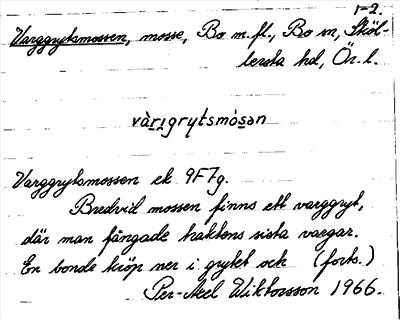 1-2.
Varggrytsmossen, mosse, Bo m.fl., Bo sn, Sköl-
lersta hd, Ör. l.
vàrıgrytsmòsən
Varggrytsmossen ek 9F7g.
Bredvid mossen finns ett varggryt,
där man fångade traktens sista vargar.
En bonde kröp ner i grytet och (forts.)
Per-Axel Wiktorsson 1966.